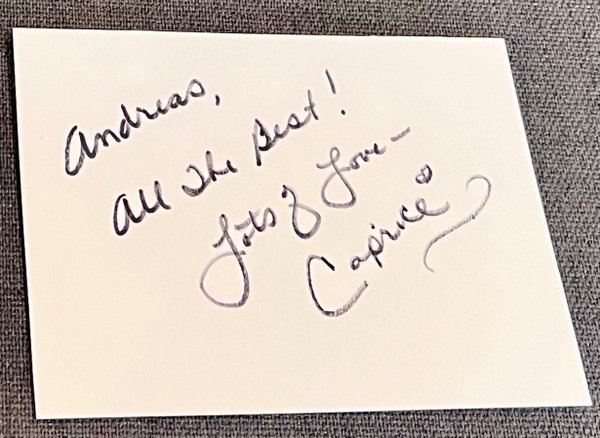 Andreas,
All The Best!
Lots of Love –
Caprice